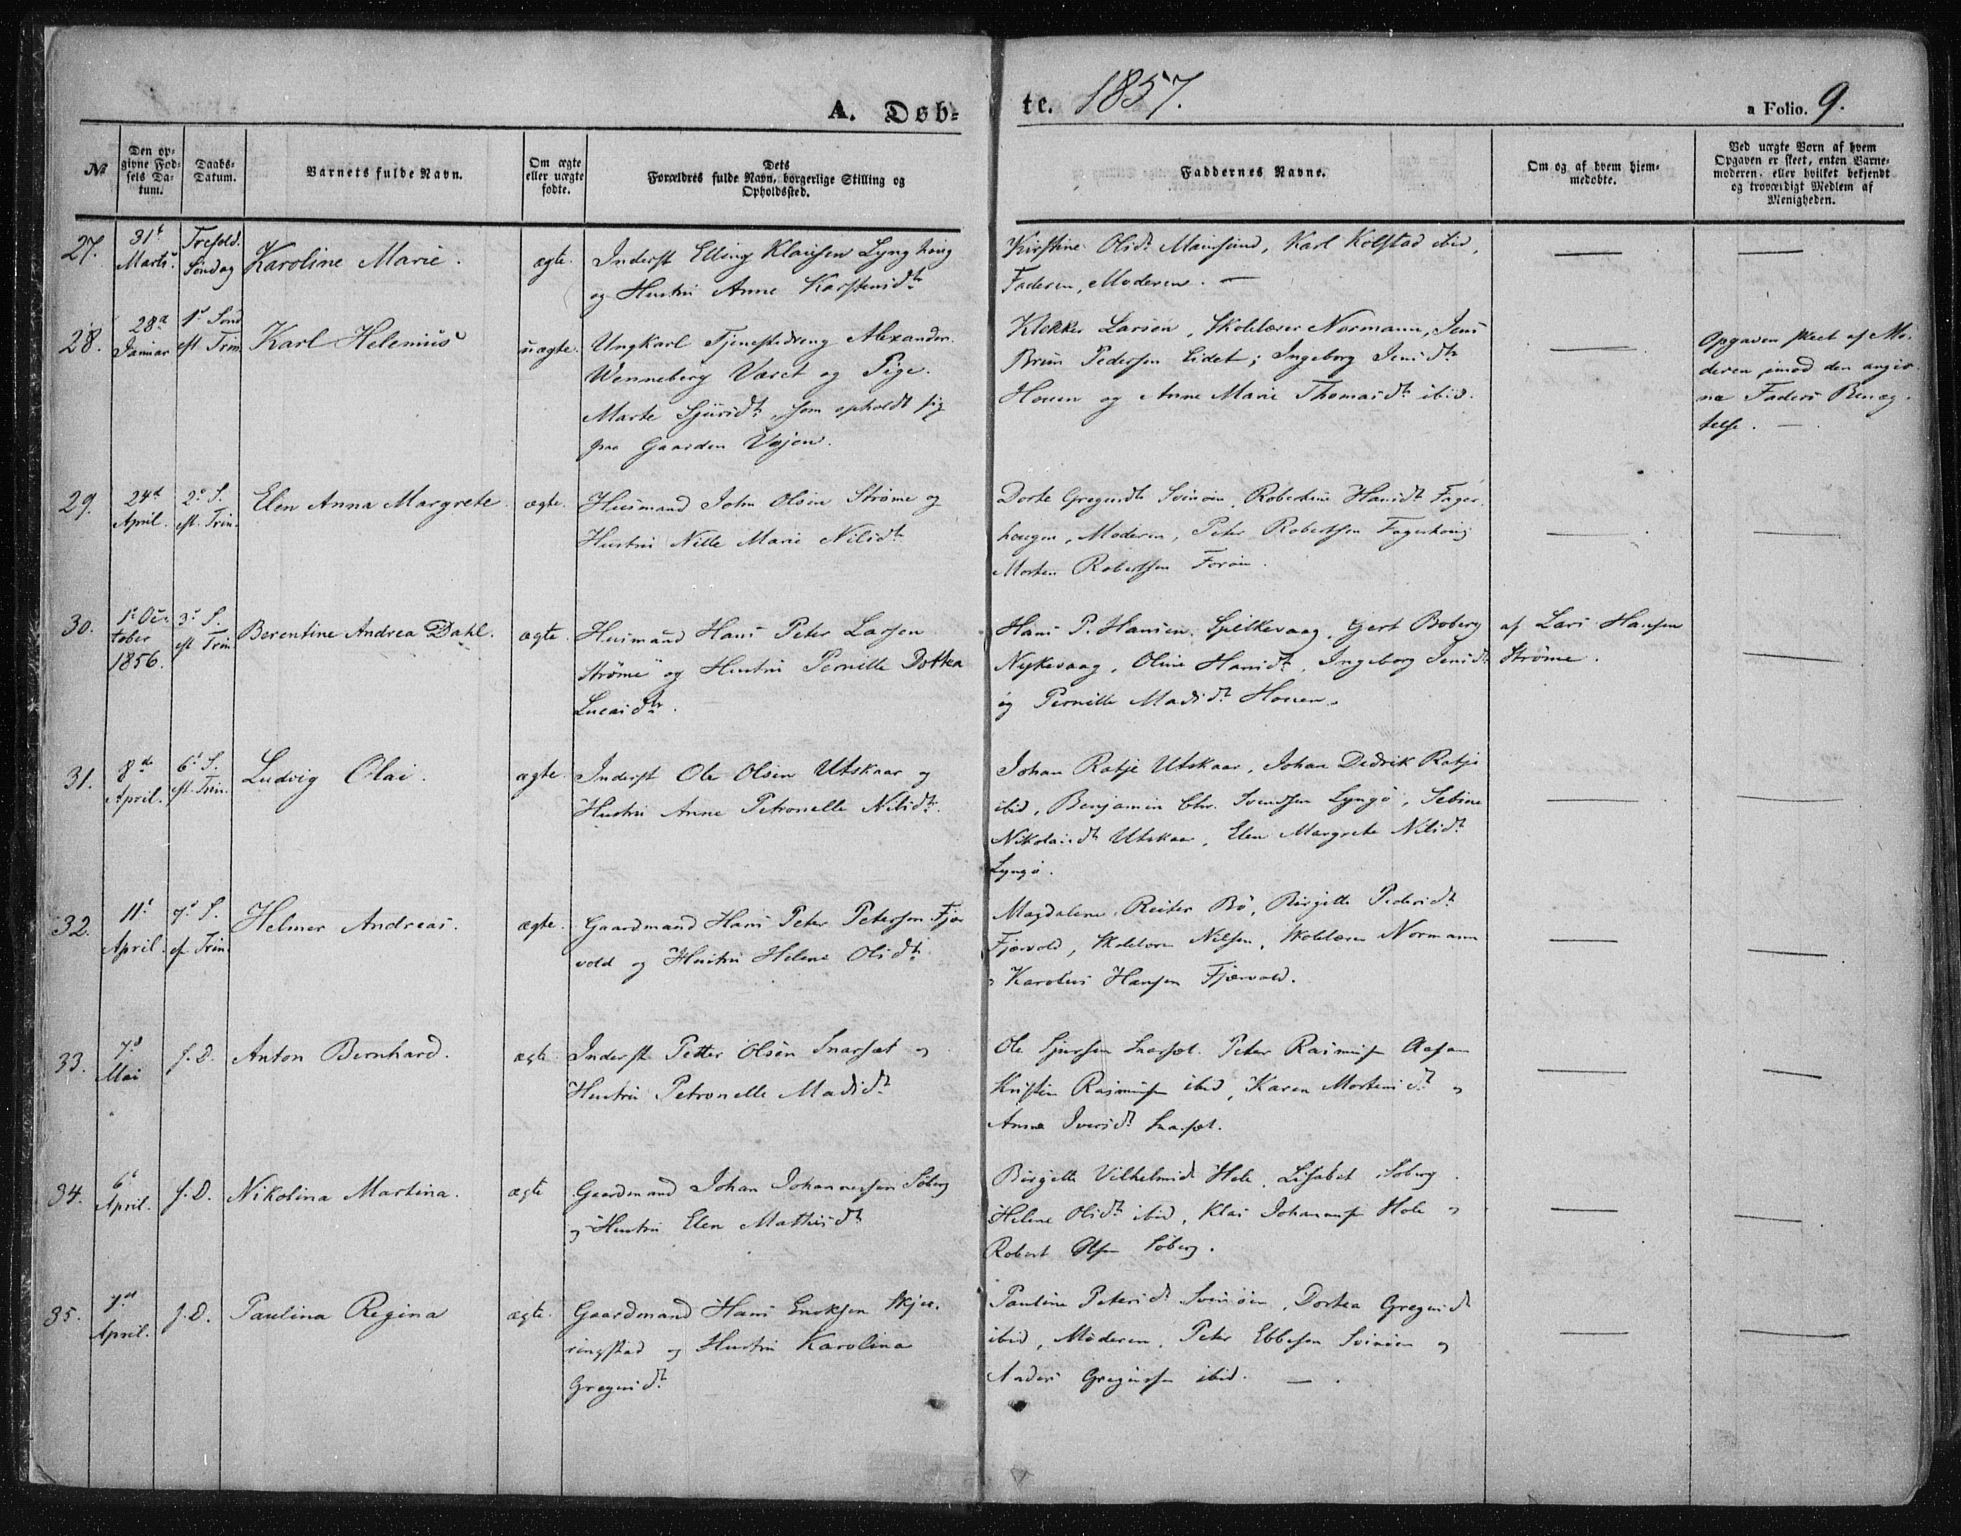 A. Døb=
te. 1857.
a Folio. 9.
№
Den op-
givne Fød-
sels Da-
tum.
Daabs-
Datum.
Barnets fulde Navn.
Om ægte
eller uægte
fødte.
Dets
Forældres fulde Navn, borgerlige Stilling og
Opholdssted.
Faddernes Navne.
Om og af hvem hjem-
medøbt.
Ved uægte Børn af hvem
Opgaven er skeet, enten Barne-
moderen, eller hvilket bekjendt
og troværdigt Medlem af
Menigheden.
27.
31t
Marts.
Trefold.
Søndag
Karoline Marie.
ægte.
Inderst Elling Klausen Lynghoug
og Hustru Anne Karstensdtr
Kirstine Olsdtr Maisund, Karl Kolstad ibid,
Faderen, Moderen. —
—
—
28.
28de
Januar
1s Sønd
eft Trin
Karl Helenius
uægte.
Ungkarl Tjenestedreng Alexander
Wenneberg Været og Pige
Marte Sjursdtr, som opholdt sig
paa Gaarden Vejen.
Klokker Larsen, Skolelærer Normann, Jens
Bruun Pedersen Eidet; Ingeborg Jensdtr
Hoven og Anne Marie Thomasdtr ibid.
—
Opgaven skeet af Mo-
deren imod den angiv-
ne Faders Benæg-
telse. —
29.
24d
April.
2s S.
eft. Trin.
Elen Anna Margrete
ægte.
Husmand John Olsen Strøme og
Hustru Nille Marie Nilsdtr
Dorte Gregersdtr Svinøen, Robertine Hansdtr Fager-
haugen, Moderen, Peter Robertsen Fagerhoug
Morten Robertsen Forøen.
—
—
30.
1s Oc-
tober
1856.
3s S.
eft Trin
Berentine Andrea Dahl.
ægte.
Husmand Hans Peter Larsen
Strøme og Hustru Pernille Dottea
Lucasdtr.
Hans P. Hansen Spilkevaag, Gert Boberg
Nykevaag, Oline Hansdtr, Ingeborg Jensdtr
og Pernille Madsdtr Hoven.
af Lars Hansen
Strøme.
—
31.
8de
April.
6s S.
eft. Trin.
Ludvig Olai.
ægte.
Inderst Ole Olsen Utskaar og
Hustru Anne Petronelle Nilsdtr.
Johan Ratje Utskaar, Johan Dedrik Ratje
ibid, Benjamin Chr. Svendsen Lyngø, Sebine
Nikolaisdtr Utskaar, Elen Margrete Nilsdtr
Lyngø.
—
—
32.
11t
April.
7s S.
ef Trin.
Helmer Andreas.
ægte.
Gaardmand Hans Peter Petersen Fjær
vold og Hustru Helene Olsdtr
Magdalene Reiter Bø, Birgitte Pedersdtr
Fjærvold, Skolelærer Nilsen, Skolelærer Normann
og Karolus Hansen Fjærvold.
—
—
33.
7d
Mai
s. D.
Anton Bernhard.
ægte.
Inderst Petter Olsen Snarset og
Hustru Petronelle Madsdtr
Ole Sjursen Snarset. Peter Rasmusen Aasan
Kristen Rasmusen ibid, Karen Mortensdtr og
Anna Iversdtr Snarset.
—
—
34.
6t
April.
s. D.
Nikolina Martina.
ægte
Gaardmand Johan Johannessen Søberg
og Hustru Elen Mathisdtr
Birgitte Vilhelmsdtr Hole, Lisabet Søberg
Helene Olsdtr ibid, Klas Johannesen Hole og
Robert Olsen Søberg.
—
—
35.
7de
April.
s. D.
Paulina Regina
ægte.
Gaardmand Hans Eriksen Skjær-
ringstad og Hustru Karolina
Gregersdtr
Pauline Petersdtr Svinøen, Dortea Gregersdtr
ibid, Moderen, Peter Ebbesen Svinøen og
Anders Gregersen ibid. —
—
—